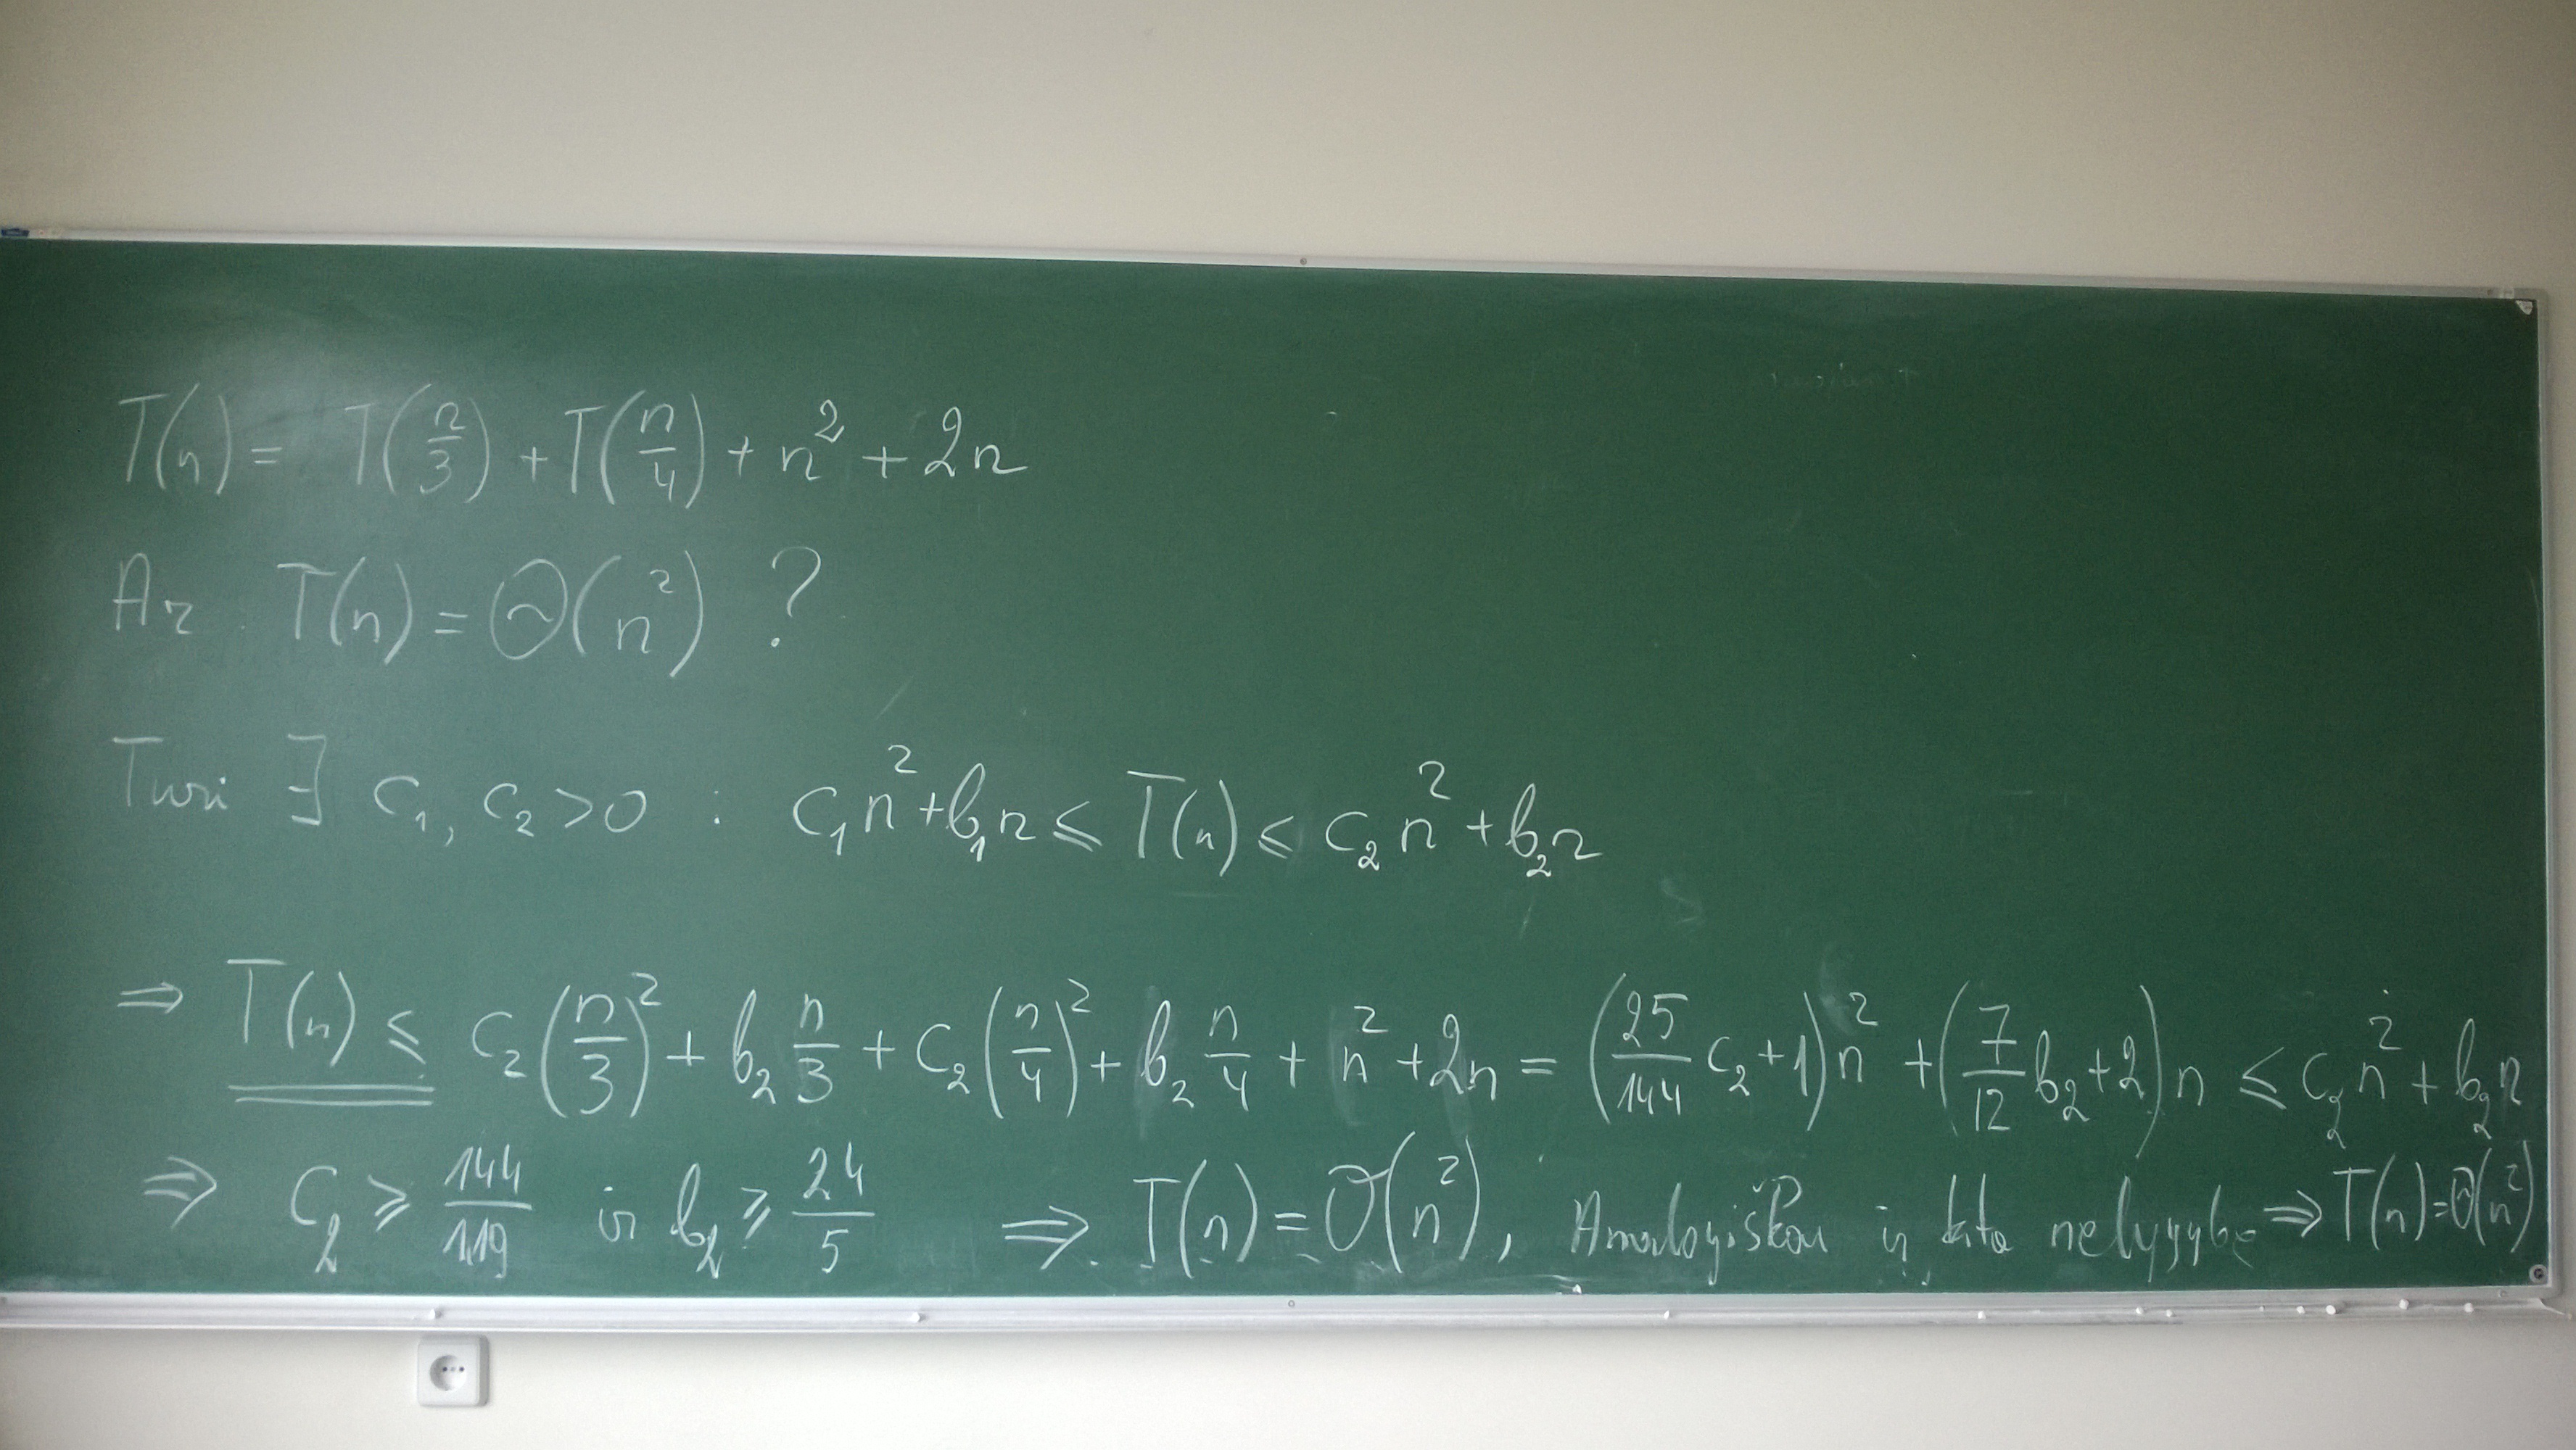 T(n) = T(n/3) + T(n/4) + n² + 2n
Ar T(n) = Θ(n²) ?
Turi ∃ c₁, c₂ > 0 : c₁n² + b₁n ≤ T(n) ≤ c₂n² + b₂n
⇒ T(n) ≤ c₂(n/3)² + b₂ n/3 + c₂(n/4)² + b₂ n/4 + n² + 2n = (25/144 c₂ + 1)n² + (7/12 b₂ + 2)n ≤ c₂n² + b₂n
⇒ c₂ ≥ 144/119 ir b₂ ≥ 24/5 ⇒ T(n) = O(n²), Analogiškai ir kita nelygybė ⇒ T(n) = Θ(n²)